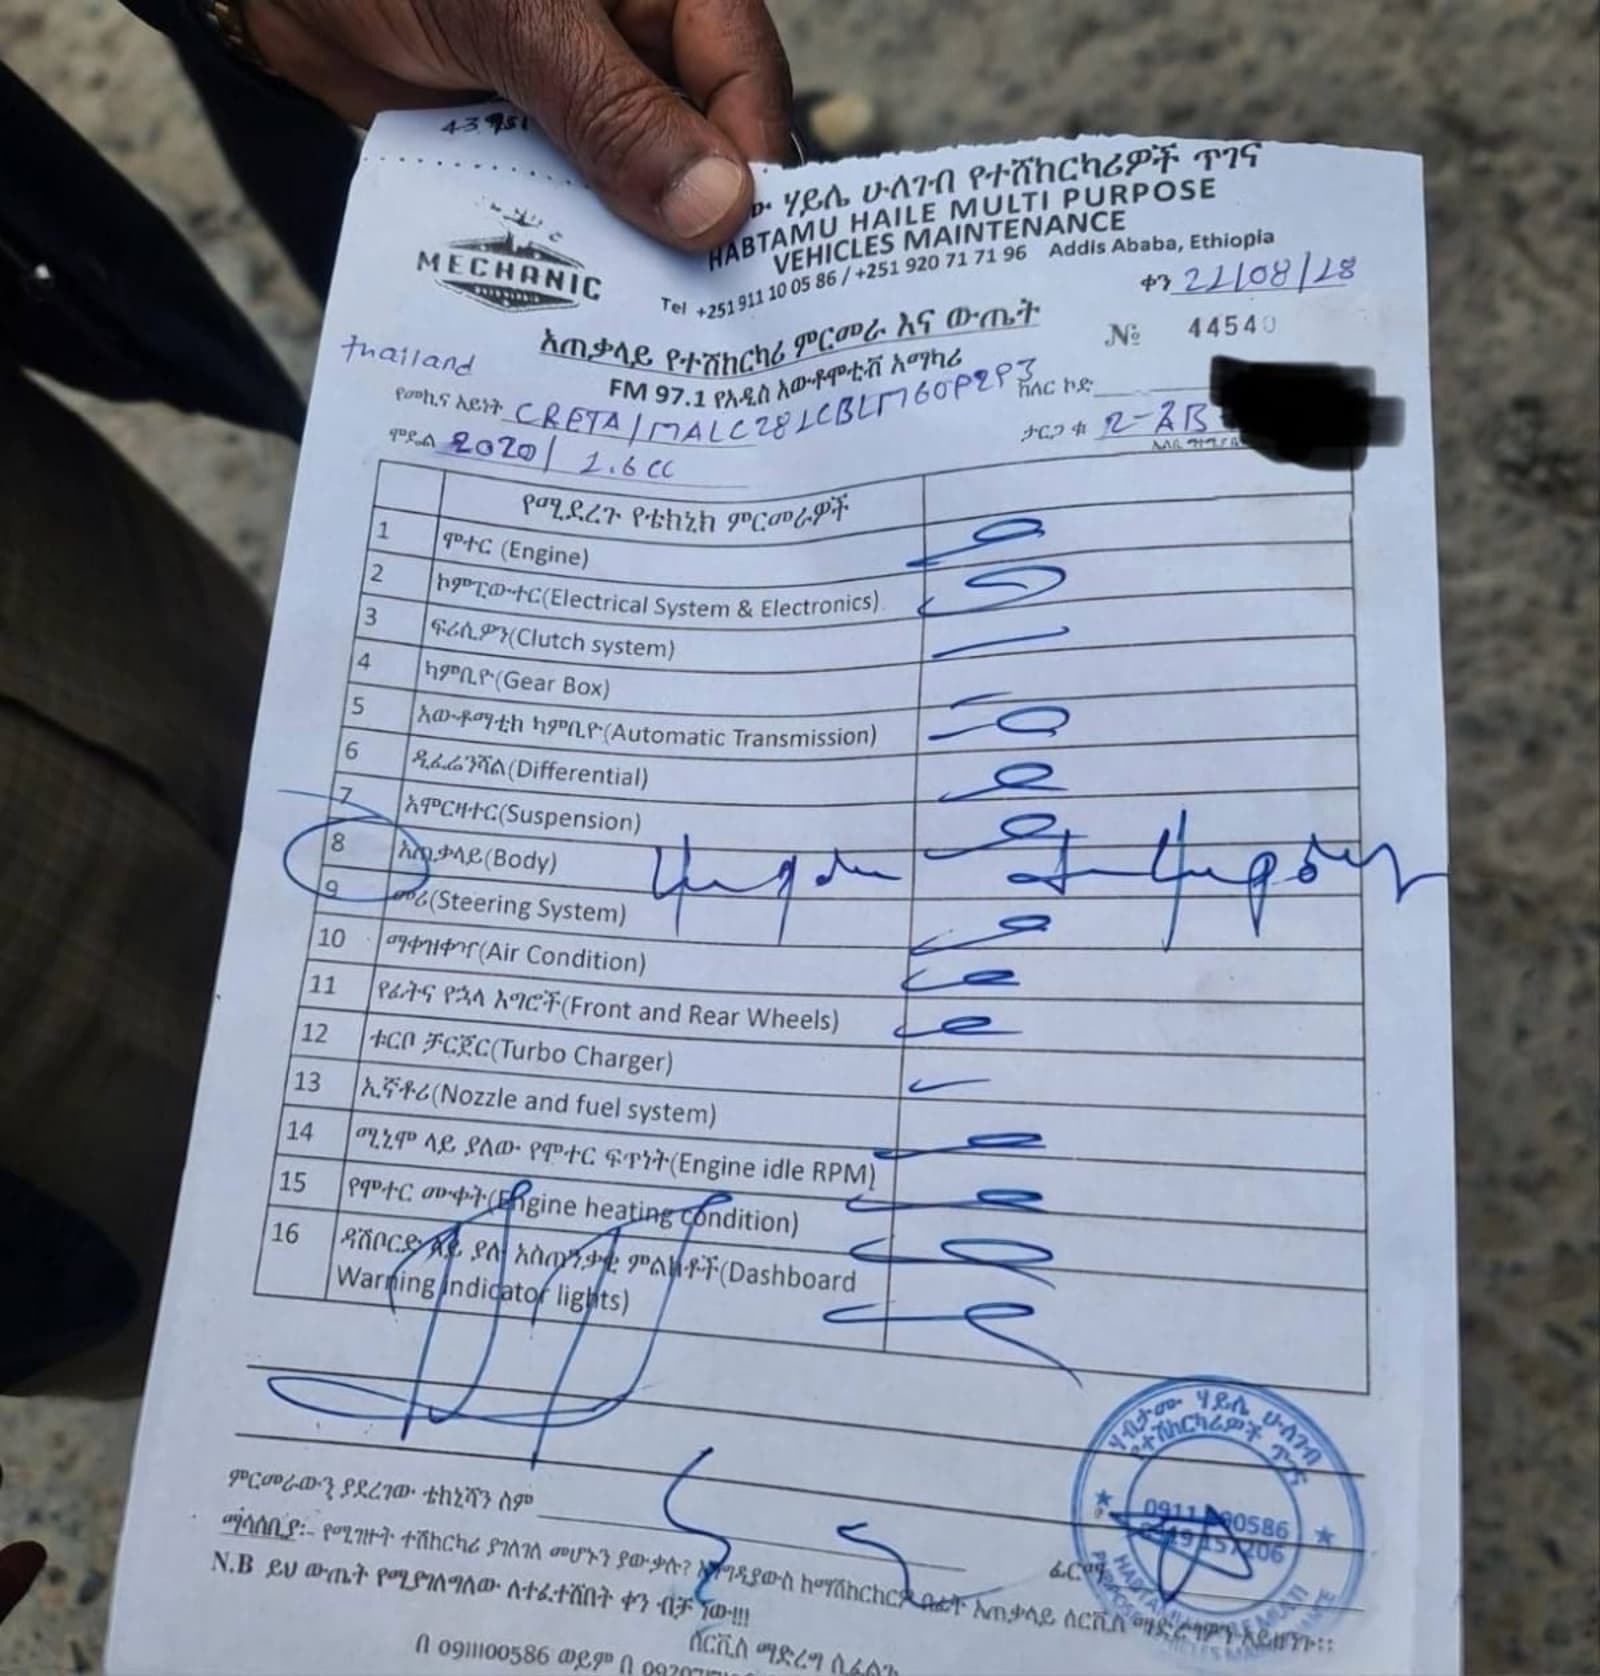 ሃይሌ ሁለገብ የተሽከርካሪዎች ጥገና
HABTAMU HAILE MULTI PURPOSE
VEHICLES MAINTENANCE
MECHANIC
Tel +251 911 10 05 86 / +251 920 71 71 96 Addis Ababa, Ethiopia
ቀን 21/08/18
አጠቃላይ የተሽከርካሪ ምርመራ እና ውጤት
№ 44540
thailand
FM 97.1 የአዲስ አውቶሞቲቭ አማካሪ
የመኪና አይነት CRETA/MALC281CBLM60P2P3 ከለር ኮድ
ሞዴል 2020/ 1.6cc ታርጋ ቁ 2-AB
የሚደረጉ የቴክኒክ ምርመራዎች
1 ሞተር (Engine)
2 ኮምፒውተር(Electrical System & Electronics)
3 ፍሪሲዎን(Clutch system)
4 ካምቢዮ(Gear Box)
5 አውቶማቲክ ካምቢዮ(Automatic Transmission)
6 ዲፈሬንሻል(Differential)
7 አሞርዛተር(Suspension)
8 አጠቃላይ(Body)
9 መሪ(Steering System)
10 ማቀዝቀዣ(Air Condition)
11 የፊትና የኋላ እግሮች(Front and Rear Wheels)
12 ቱርቦ ቻርጀር(Turbo Charger)
13 ኢኛቶሪ(Nozzle and fuel system)
14 ሚኒሞ ላይ ያለው የሞተር ፍጥነት(Engine idle RPM)
15 የሞተር ሙቀት(Engine heating condition)
16 ዳሽቦርድ ላይ ያሉ አስጠንቃቂ ምልክቶች(Dashboard
Warning indicator lights)
ምርመራውን ያደረገው ቴክኒሻን ስም
ፊርማ
ማሳሰቢያ፡- የሚገዙት ተሽከርካሪ ያገለገለ መሆኑን ያውቃሉ? እንግዲያውስ ከማሽከርከርዎ በፊት አጠቃላይ ሰርቪስ ማድረግዎን አይዘንጉ፡፡
N.B ይህ ውጤት የሚያገለግለው ለተፈተሸበት ቀን ብቻ ነው!!!
ሰርቪስ ማድረግ ሲፈልጉ
በ 0911100586 ወይም በ
ሃብታሙ ሃይሌ ሁለገብ
የተሽከርካሪዎች ጥገና